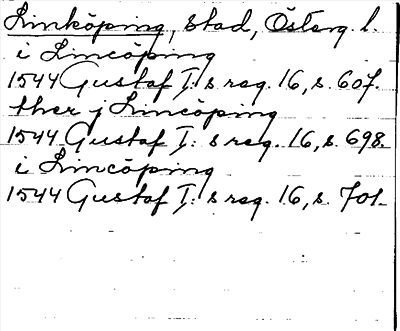 Linköping, stad, Österg l.
i Lincöping
1544 Gustaf I: s reg. 16, s. 607.
ther j Lincöping
1544 Gustaf I: s reg. 16, s. 698.
i Lincöping
1544 Gustaf I: s reg. 16, s. 701.